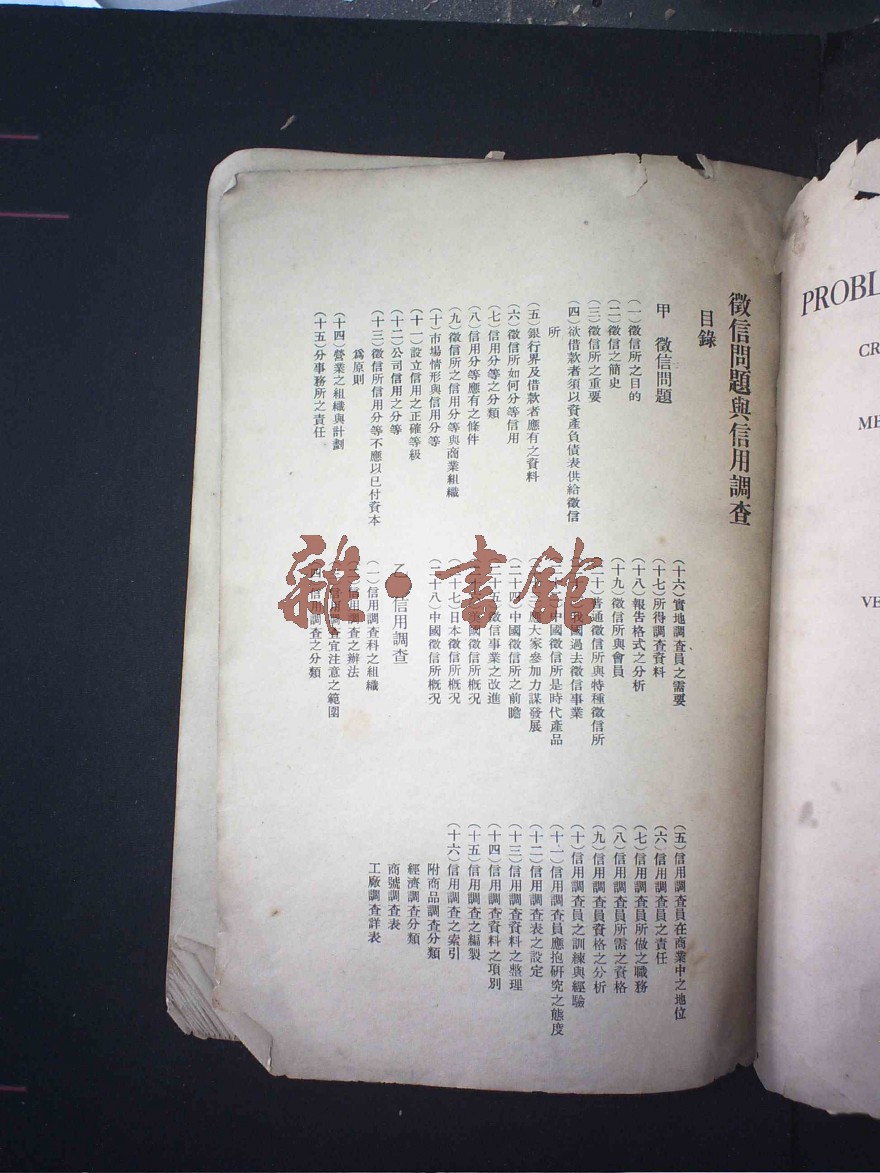 徵信問題與信用調查
目錄
甲　徵信問題
(一)徵信所之目的
(二)徵信之簡史
(三)徵信所之重要
(四)欲借款者須以資產負債表供給徵信
所
(五)銀行界及借款者應有之資料
(六)徵信所如何分等信用
(七)信用分等之分類
(八)信用分等應有之條件
(九)徵信所之信用分等與商業組織
(十)市場情形與信用分等
(十一)設立信用之正確等級
(十二)公司信用之分等
(十三)徵信所信用分等不應以已付資本
為原則
(十四)營業之組織與計劃
(十五)分事務所之責任
(十六)實地調查員之需要
(十七)所得調查資料
(十八)報告格式之分析
(十九)徵信所與會員
(二十)普通徵信所與特種徵信所
我國過去徵信事業
中國徵信所是時代產品
應大家參加力謀發展
(二十四)中國徵信所之前瞻
(二十五)徵信事業之改進
美國徵信所概況
(二十七)日本徵信所概況
(二十八)中國徵信所概況
乙　信用調查
(一)信用調查科之組織
信用調查之辦法
信用調查宜注意之範圍
(四)信用調查之分類
(五)信用調查員在商業中之地位
(六)信用調查員之責任
(七)信用調查員所做之職務
(八)信用調查員所需之資格
(九)信用調查員資格之分析
(十)信用調查員之訓練與經驗
(十一)信用調查員應抱研究之態度
(十二)信用調查表之設定
(十三)信用調查資料之整理
(十四)信用調查資料之項別
(十五)信用調查之編製
(十六)信用調查之索引
附商品調查分類
經濟調查分類
商號調查表
工廠調查詳表
雜·書館
PROBL
CR
ME
VE